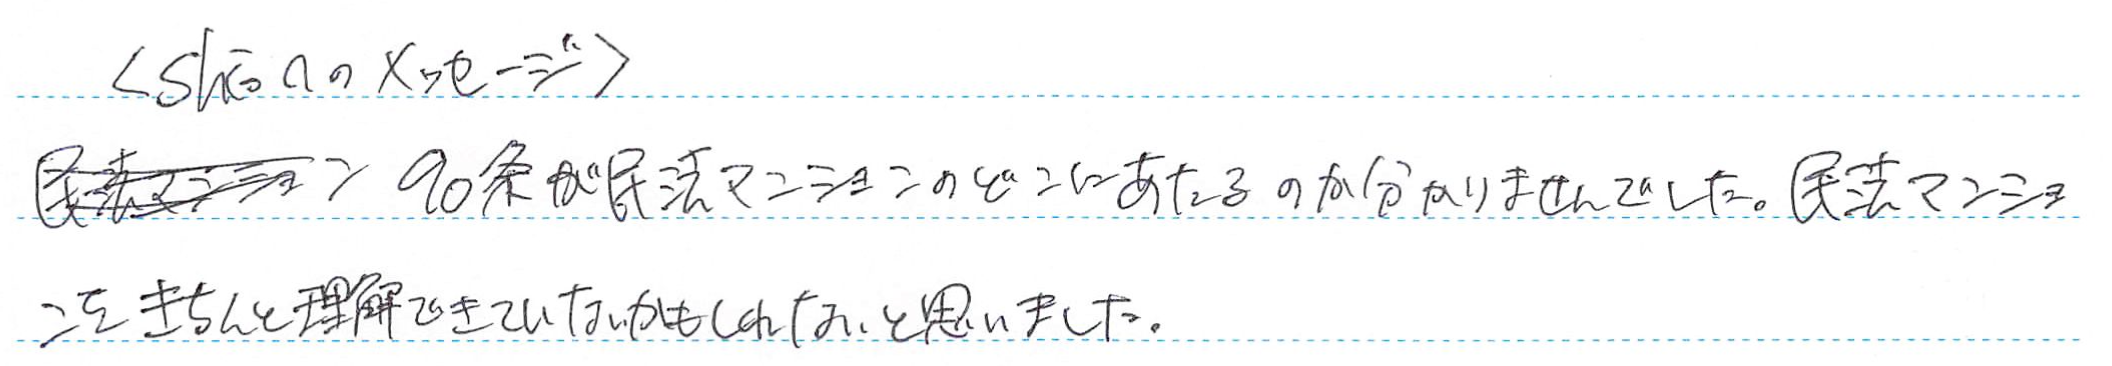 <Shionのメッセージ>
民法マンション 90条が民法マンションのどこにあたるのか分かりませんでした。民法マンショ
ンをきちんと理解できていないかもしれないと思いました。